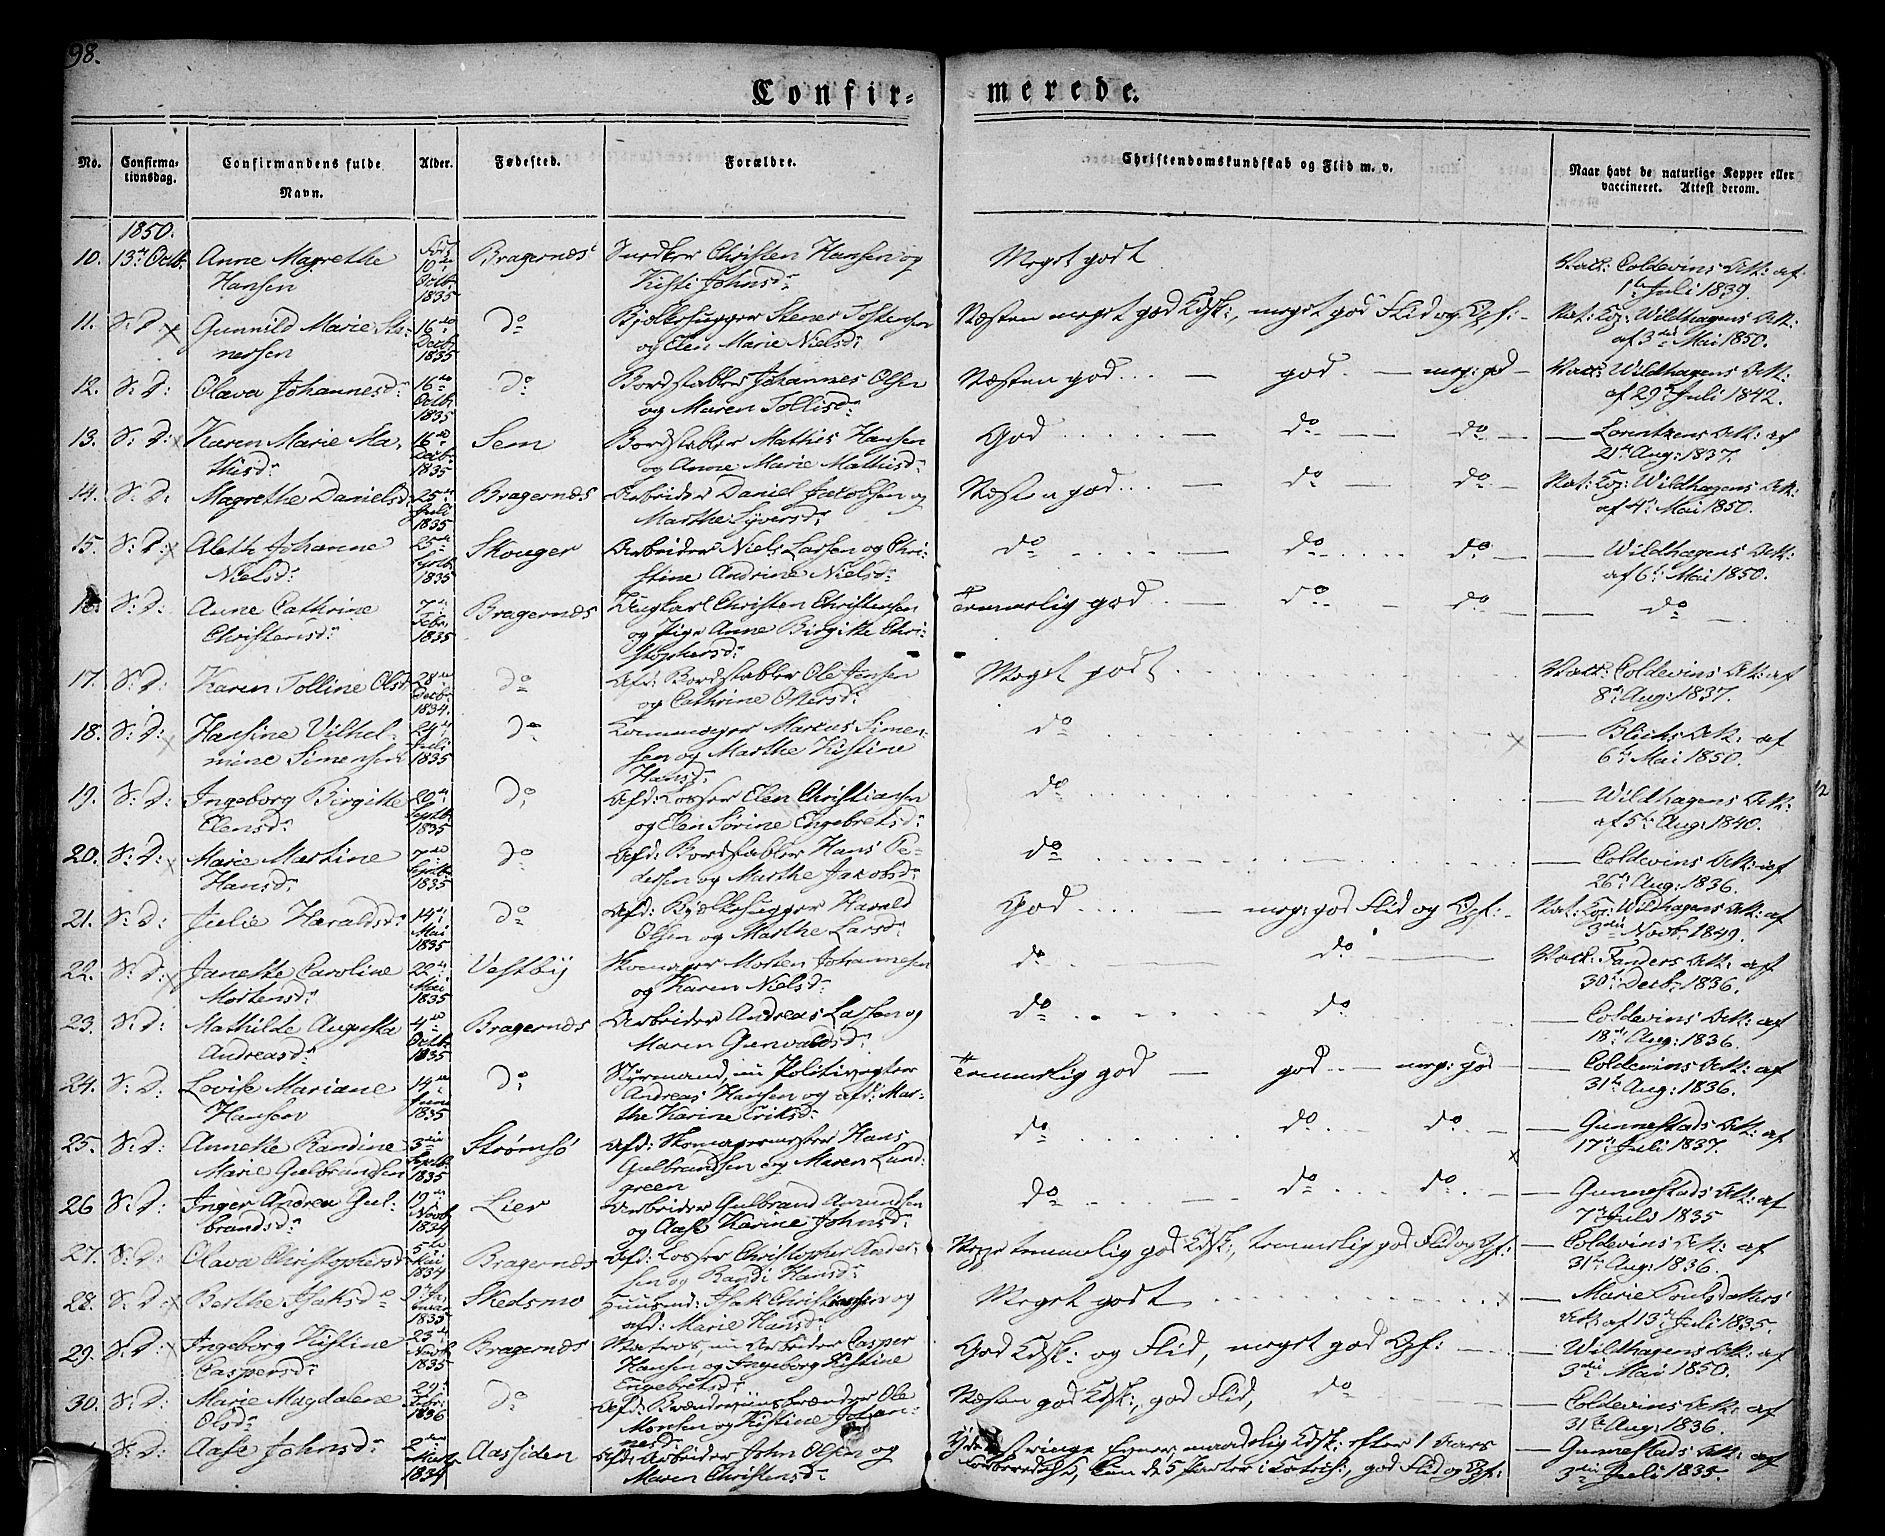 98.
Confir- merede.
No. Confirmationsdag. Confirmandens fulde Navn. Alder. Fødested. Forældre. Christendomskundskab og Flid m. v. Naar havt de naturlige Kopper eller vaccineret. Attest derom.
1850.
10. 13de Octb: Anne Magrethe Hansen Fød 10 Octbr 1835 Bragernæs Snedker Christen Hansen og Kisti Johnsd: Meget godt Vatt: Coldevins Att: af 1ste Juli 1839.
11. S: D: Gunnild Marie Stenersen 16de Decbr 1835 do Bjelkehugger Stener Tostensen og Elen Marie Nielsd: Næsten meget god Kdsk:, meget god Flid og Opf: Nat: Kop: Wildhagens Att: af 3die Mai 1850.
12. S: D: Olava Johannesd: 16de Octbr 1835 do Bordstabler Johannes Olsen og Maren Tollisd: Næsten god — god — meg: god Vatt: Wildhagens Att: af 29de Juli 1842.
13. S: D: Karen Marie Mathisd: 16de Decbr 1835 Sem Bordstabler Mathis Hansen og Anne Marie Mathisd: God — do — do — Lorentzens Att: af 21de Aug: 1837.
14. S: D: Magrethe Danielsd: 25de Juli 1835 Bragernæs Arbeider Daniel Jacobsen og Marthe Syversd: Næsten god — do — do Nat: Kop: Wildhagens Att: af 4de Mai 1850.
15. S: D: Aleth Johanne Nielsd: 25de Septbr 1835 Skouger Arbeider Niels Larsen og Christine Andrine Nielsd: do — do — do — Wildhagens Att: af 6te Mai 1850.
16. S: D: Anne Cathrine Christensd: 7de Febr. 1835 Bragernæs Ungkarl Christen Christensen og Pige Anne Birgitte Christophersd: Temmelig god — do — do — do
17. S: D: Karen Tolline Olsd: 28de Decbr 1834. do Afd: Bordstabler Ole Jensen og Cathrine Olersd: Meget godt Vatt: Coldevins Att: af 8de Aug: 1837.
18. S: D: Hansine Vilhelmine Simensen 24de Juli 1835 do Simensen og Marthe Kistine Hansd: do — Blichs Att: af 6te Mai 1850.
19. S: D: Ingeborg Birgitte Elensd: 20de Septbr 1835 do Afd: Losser Elen Christiansen og Elen Sørine Engebretsd: do — Wildhagens Att: af 5te Aug: 1840.
20. S: D: Marie Martine Hansd: 7de Septbr 1835 do Afd: Bordstabler Hans Pedersen og Marthe Jacobsd: do — Coldevins Att: af 26de Aug: 1836.
21. S: D: Julie Haraldsd: 14de Mai 1835 do Afd: Bjelkehugger Harald Olsen og Marthe Larsd: God — meg: god Flid og Opf: Nat: Kop: Wildhagens Att: af 3die Novbr. 1849.
22. S: D: Janette Caroline Mortensd: 22de Mai 1835 Vestby Skomager Morten Johannesen og Karen Nielsd: do — do Vatt: Fanders Att: af 30te Decbr 1836.
23. S: D: Mathilde Augusta Andreasd: 4de Octbr 1835 Bragernæs Arbeider Andreas Larsen og Maren Gunvaldsd: do — do — Coldevins Att: af 18de Aug: 1836.
24. S: D: Lovise Mariane Hansen 14de Juni 1835 do Styrmand, nu Politivægter Andreas Hansen og afd: Marthe Karine Eriksd: Temmelig god — god — meg: god — Coldevins Att: af 31te Aug: 1836.
25. S: D: Annette Randine Marie Gulbrandsen 3die Septbr 1835 Strømsø Afd: Skomagermester Hans Gulbrandsen og Maren Lundgreen do — do — do — Gunnestads Att: af 17de Juli 1837.
26 S: D: Inger Andrea Gulbrandsd: 19de Novb 1834 Lier Arbeider Gulbrand Amundsen og Aase Karine Johnsd: do — do — do — Gunnestads Att: af 7de Juli 1835
27. S: D: Olava Christophersd 5te Mai 1834 Bragernæs Afd: Losser Christopher Andersen og Randi Hansd: Neppe temmelig god Kdsk:, temmelig god Flid og Opf: — Coldevins Att: af 31te Aug: 1836.
28. S: D: Berthe Isaksd: 1835 Skedsmo Huusmd: Isak Christiansen og afd: Marie Hansd: Meget godt — Marie Att: af 13de Juli 1835.
29. S: D: Ingeborg Kistine Caspersd: 23de Novb 1835 Bragernæs Matros, nu Arbeider Casper Hansen og Ingeborg Kistine Engebretsd: God Kdsk: og Flid, meget god Opf: — Wildhagens Att: af 3die Mai 1850.
30. S: D: Marie Magdalene Olsd: 29 Febr: 1836 do Afd: Brændeviinsbrænder Ole Monsen og Kistine Johannesd: Næsten god Kdsk:, god Flid, do — Coldevins Att: af 31te Aug: 1836.
S: D: Aase Johnsd: 2den 1834 Aassiden Afd: Arbeider John Olsen og Maren Christensd: ringe Evner, maadelig Kdsk: efter 1 Aars Forberedelse, kun de 5 Parter i Catech:, god Flid og Opf: — Gunnestads Att: af 3die Juli 1835.